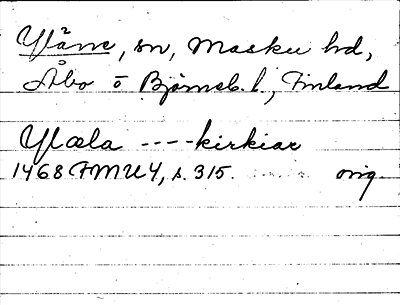 Yläne, sn, Masku hd,
Åbo o Björneb. l., Finland
Ylæla ----kirkiar
1468 FMU4, s. 315. orig.